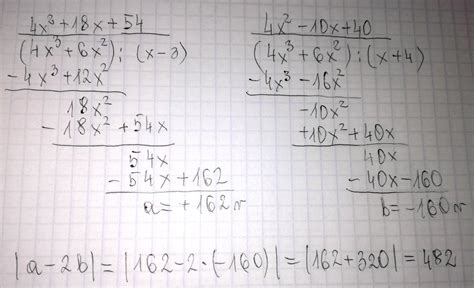 4x³+18x+54
(4x³+6x²):(x-3)
-4x³+12x²
18x²
-18x²+54x
54x
-54x+162
a=+162 r
4x²-10x+40
(4x³+6x²):(x+4)
-4x³-16x²
-10x²
+10x²+40x
40x
-40x-160
b=-160 r
|a-2b|=|162-2·(-160)|=|162+320|=482